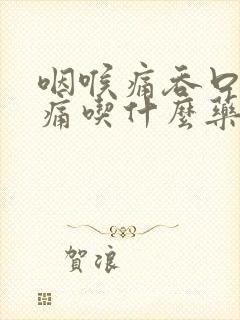 咽喉痛吞口
痛喫什麼藥
賀浪